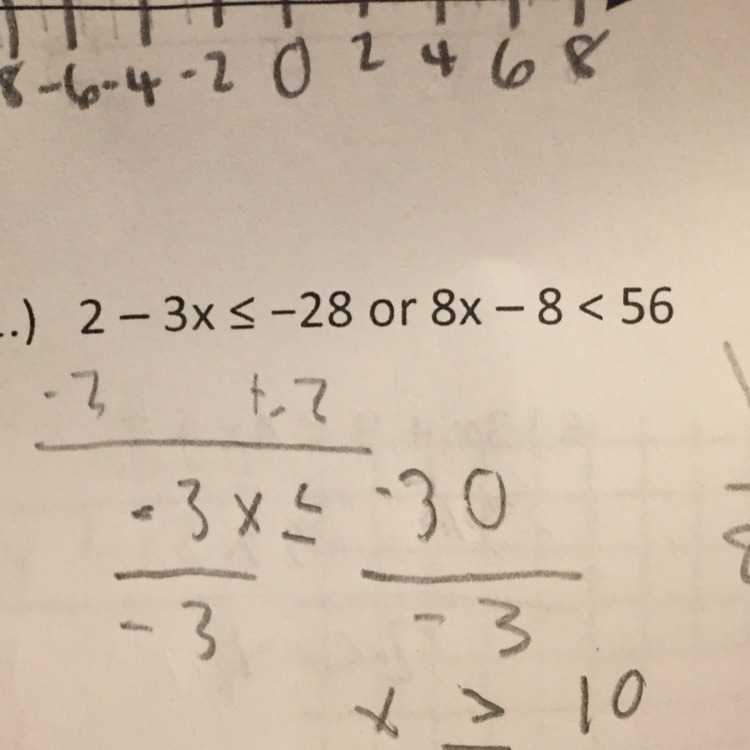 8 -6 -4 -2 0 2 4 6 8
.) 2 – 3x ≤ –28 or 8x – 8 < 56
-2 +-2
-3x ≤ -30
-3 -3
x ≥ 10